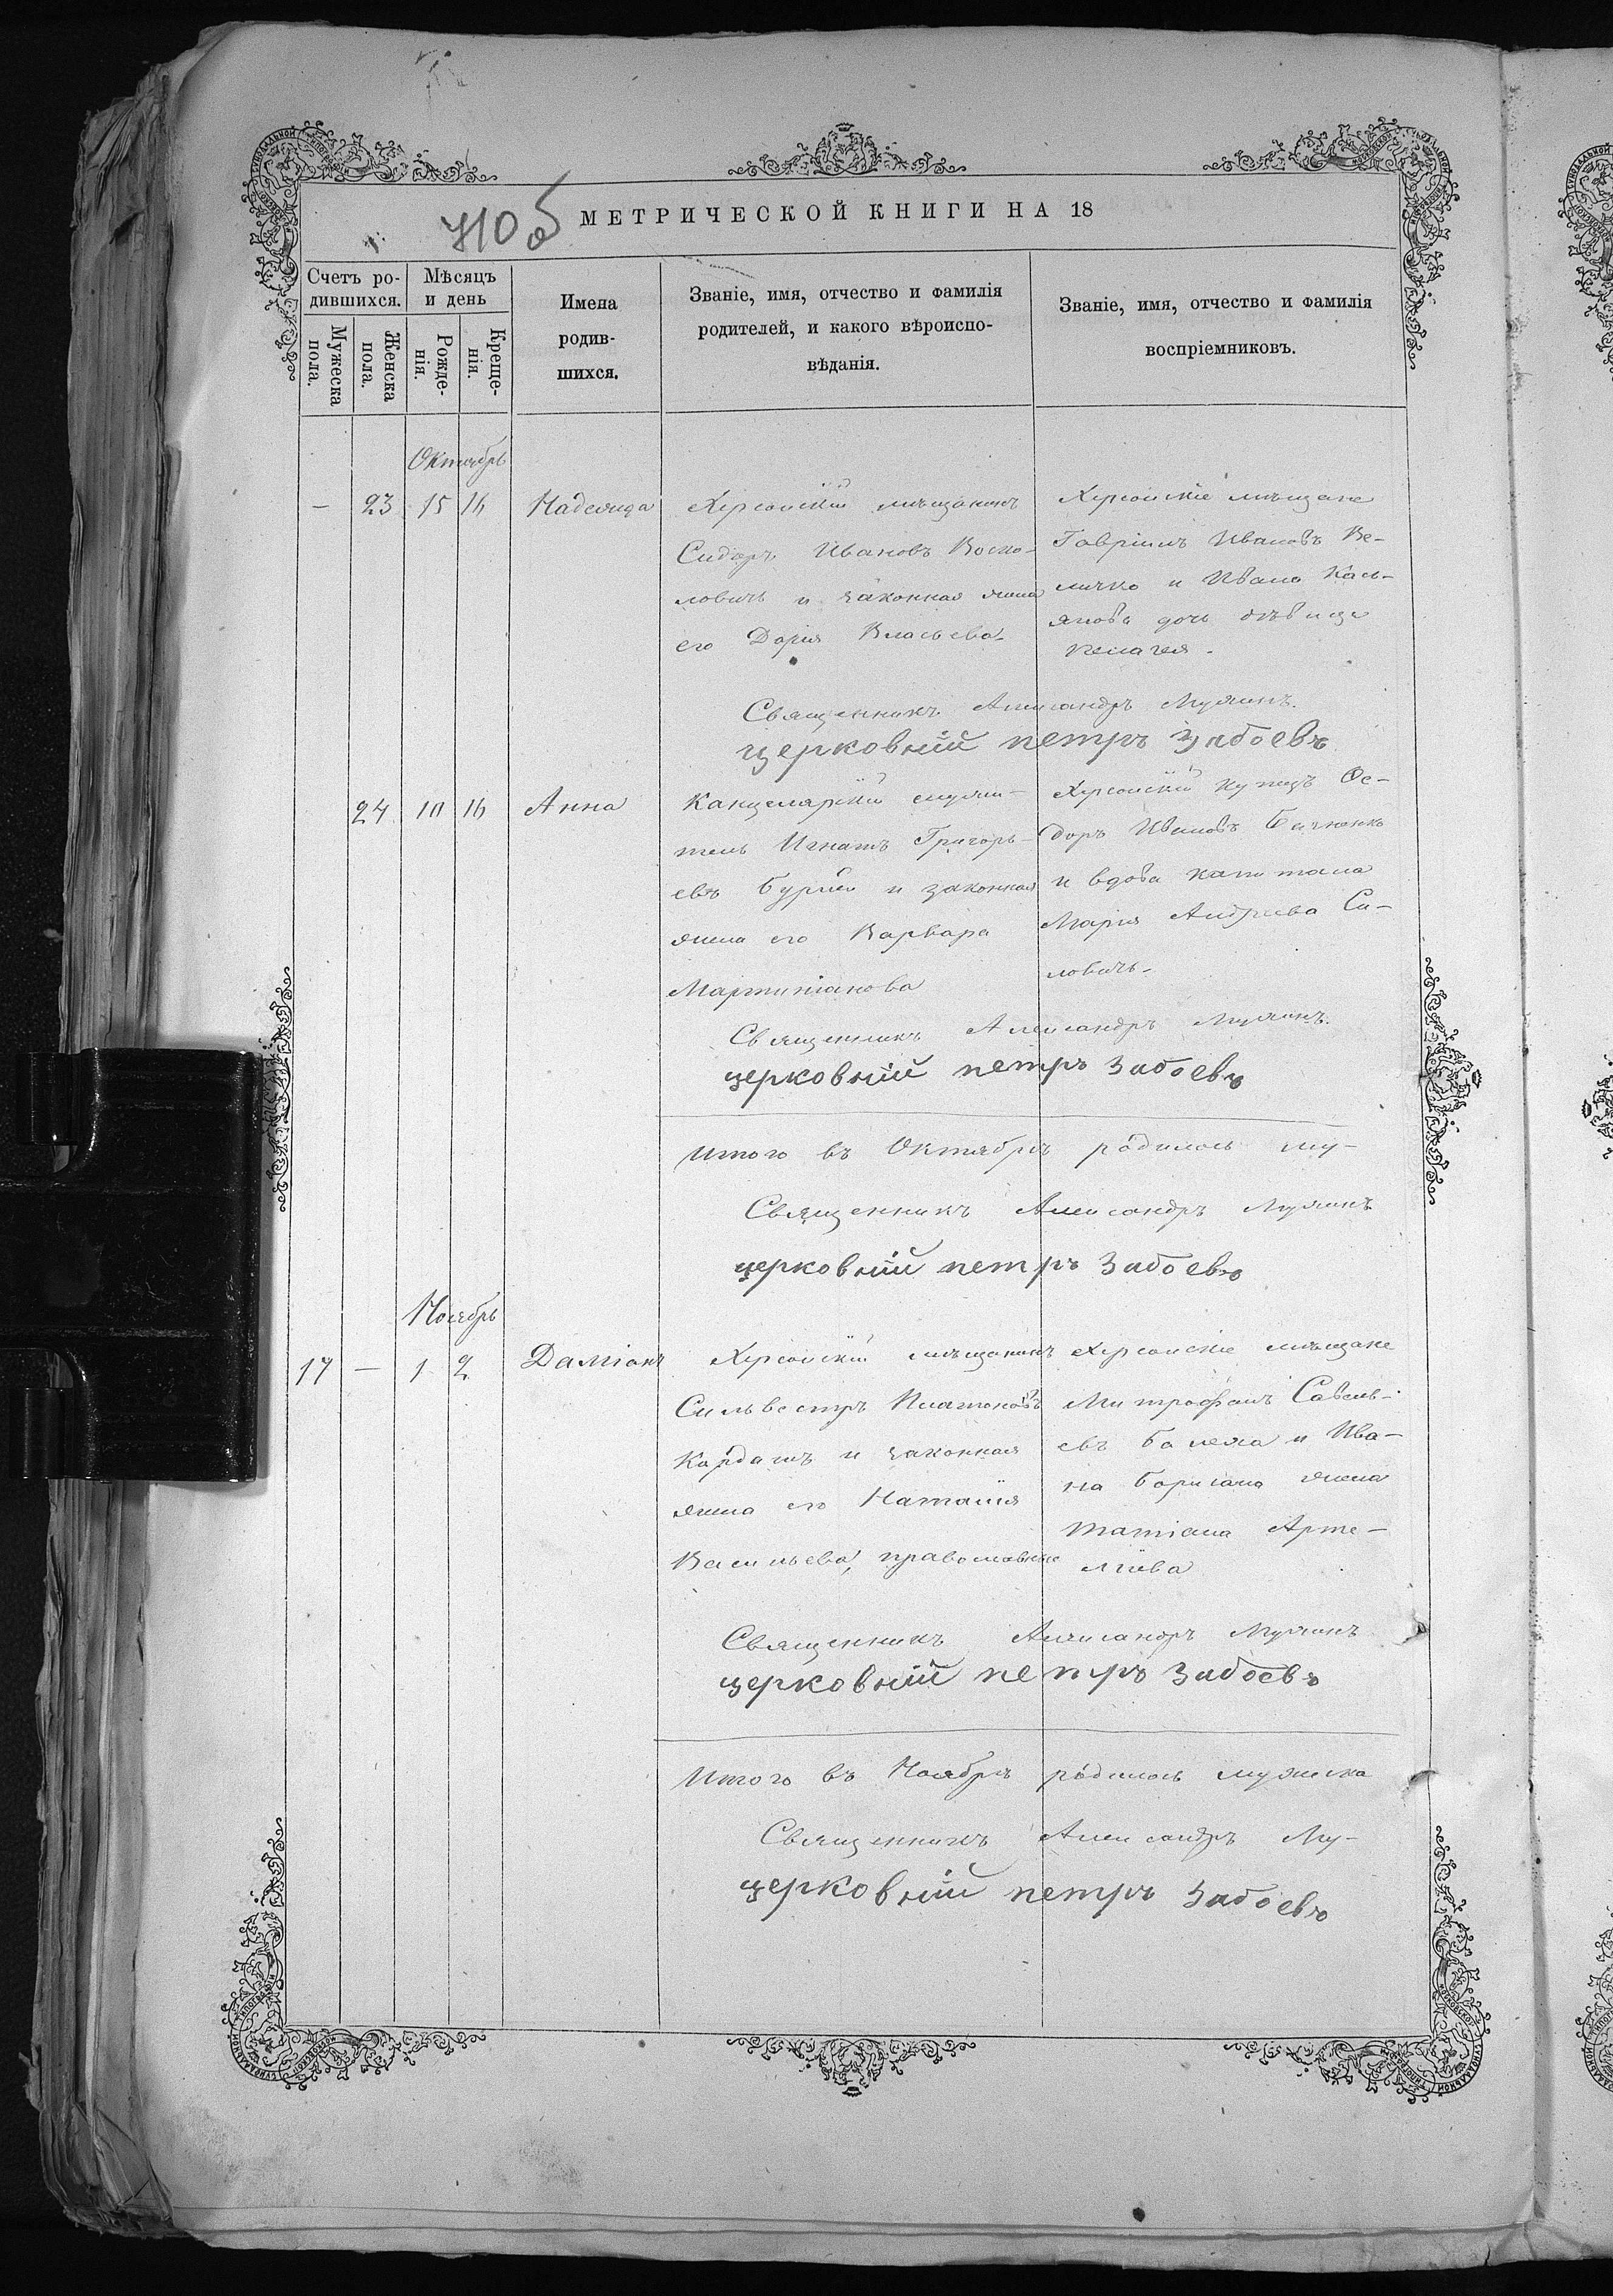 710б
МЕТРИЧЕСКОЙ КНИГИ НА 18
Счетъ ро-
дившихся.
Мужеска
пола.
Женска
пола.
Мѣсяцъ
и день
Рожде-
нія.
Креще-
нія.
Имена
родив-
шихся.
Званіе, имя, отчество и фамилія
родителей, и какого вѣроиспо-
вѣданія.
Званіе, имя, отчество и фамилія
воспріемниковъ.
Октябрь
— 23 15 16 Надежда
Херсонскій мѣщанинъ
Сидоръ Ивановъ
и законная жена
его Дарія Власьева
Херсонскіе мѣщане
Гавріилъ Ивановъ Ве-
личко и Ивана Кась-
янова дочь дѣвица
Пелагея.
Священникъ Александръ Мужинъ.
церковній петръ Забоевъ
24 10 16 Анна
Канцелярскій служи-
тель Игнатъ Григорь-
евъ и законная
жена его Варвара
Мартиніанова
Херсонскій купецъ Ѳе-
доръ Ивановъ
и вдова капитана
Марія Андреева Си-
ловичъ.
Священникъ Александръ Мужинъ.
церковній петръ Забоевъ
Итого въ Октябрѣ родилось му-
Священникъ Александръ Мужинъ
церковній петръ Забоевъ
Ноябрь
17 — 1 2 Даміанъ
Херсонскій мѣщанинъ
Сильвестръ Платоновъ
Кардашъ и законная
жена его Наталія
Васильева, православные
Херсонскіе мѣщане
Митрофанъ Савель-
евъ и Ива-
на жена
Татіана Арте-
міева
Священникъ Александръ Мужинъ
церковній петръ Забоевъ
Итого въ Ноябрѣ родилось мужеска
Священникъ Александръ Му-
церковній петръ Забоевъ